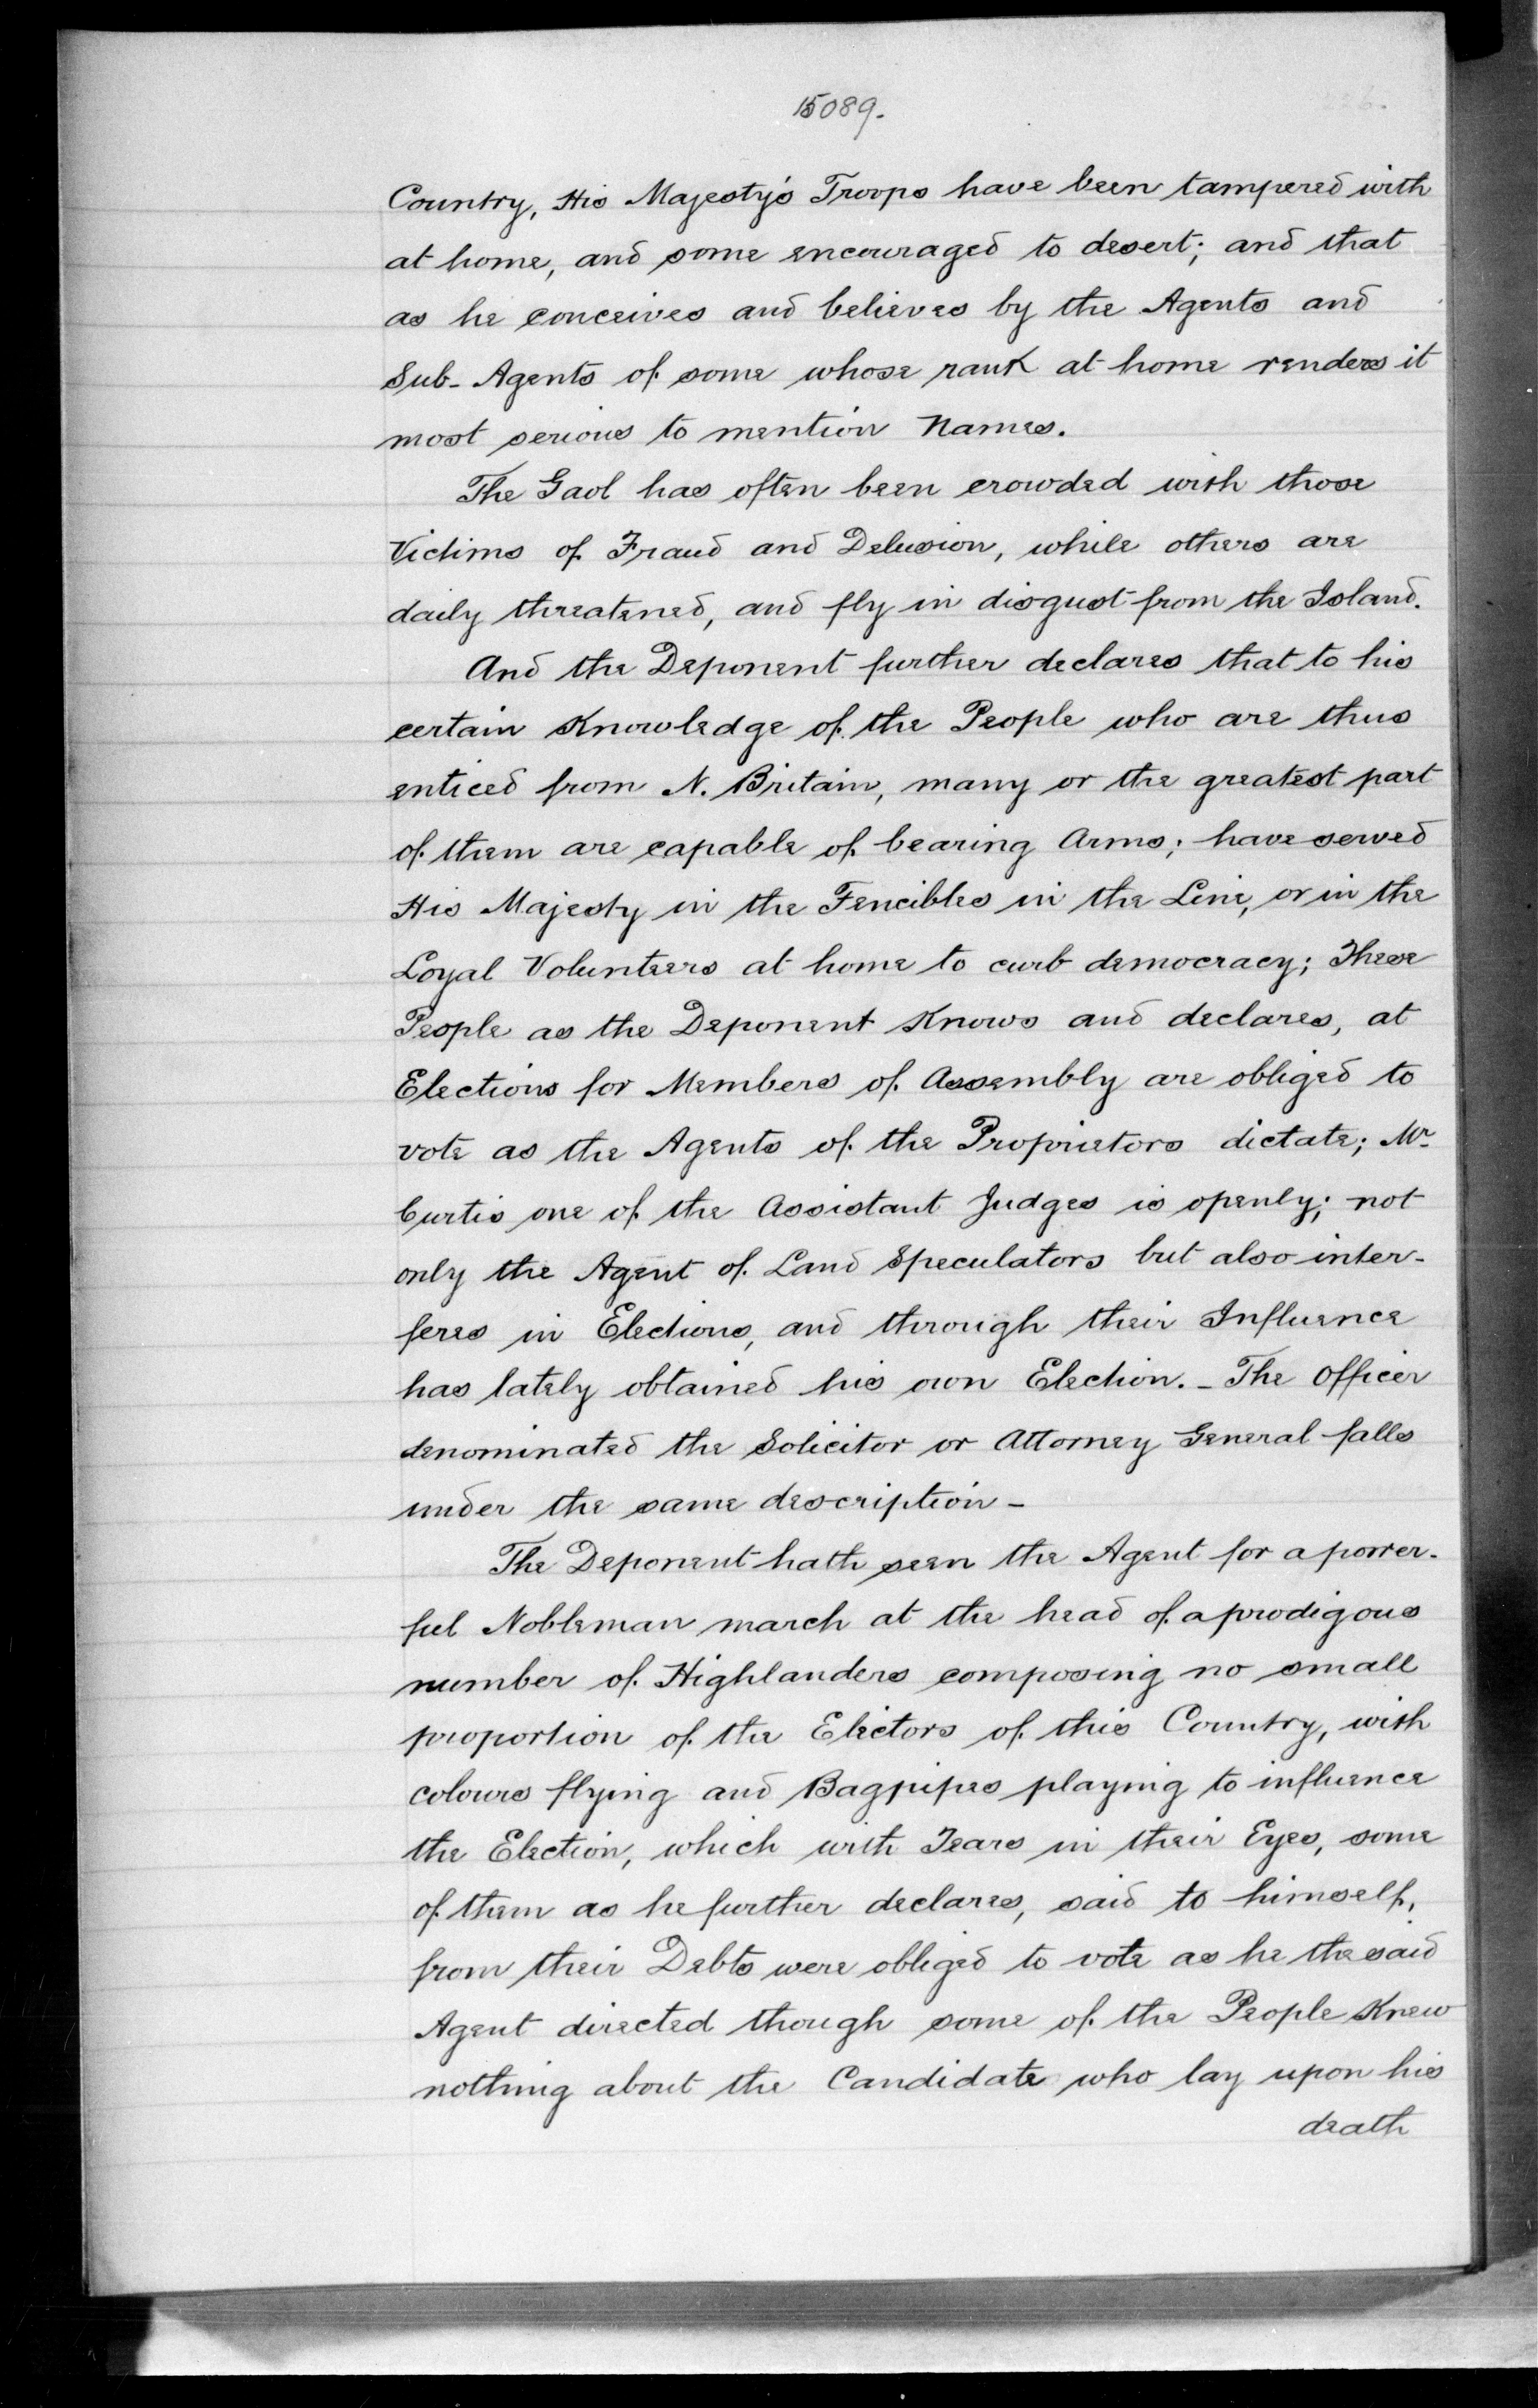 15089.
Country, His Majesty's Troops have been tampered with
at home, and some encouraged to desert; and that
as he conceives and believes by the Agents and
Sub-Agents of some whose rank at home renders it
most serious to mention Names.
The Gaol has often been crowded with those
Victims of Fraud and Delusion, while others are
daily threatened, and fly in disgust from the Island.
And the Deponent further declares that to his
certain Knowledge of the People who are thus
enticed from N. Britain, many or the greatest part
of them are capable of bearing Arms; have served
His Majesty in the Fencibles in the Line, or in the
Loyal Volunteers at home to curb democracy; These
People as the Deponent Knows and declares, at
Elections for Members of Assembly are obliged to
vote as the Agents of the Proprietors dictate; Mr
Curtis one of the Assistant Judges is openly; not
only the Agent of Land Speculators but also inter-
feres in Elections, and through their Influence
has lately obtained his own Election. - The Officer
denominated the Solicitor or Attorney General falls
under the same description -
The Deponent hath seen the Agent for a power-
ful Nobleman march at the head of a prodigous
number of Highlanders composing no small
proportion of the Electors of this Country, with
colours flying and Bagpipes playing to influence
the Election, which with Tears in their Eyes, some
of them as he further declares, said to himself,
from their Debts were obliged to vote as he the said
Agent directed though some of the People Knew
nothing about the Candidate who lay upon his
death